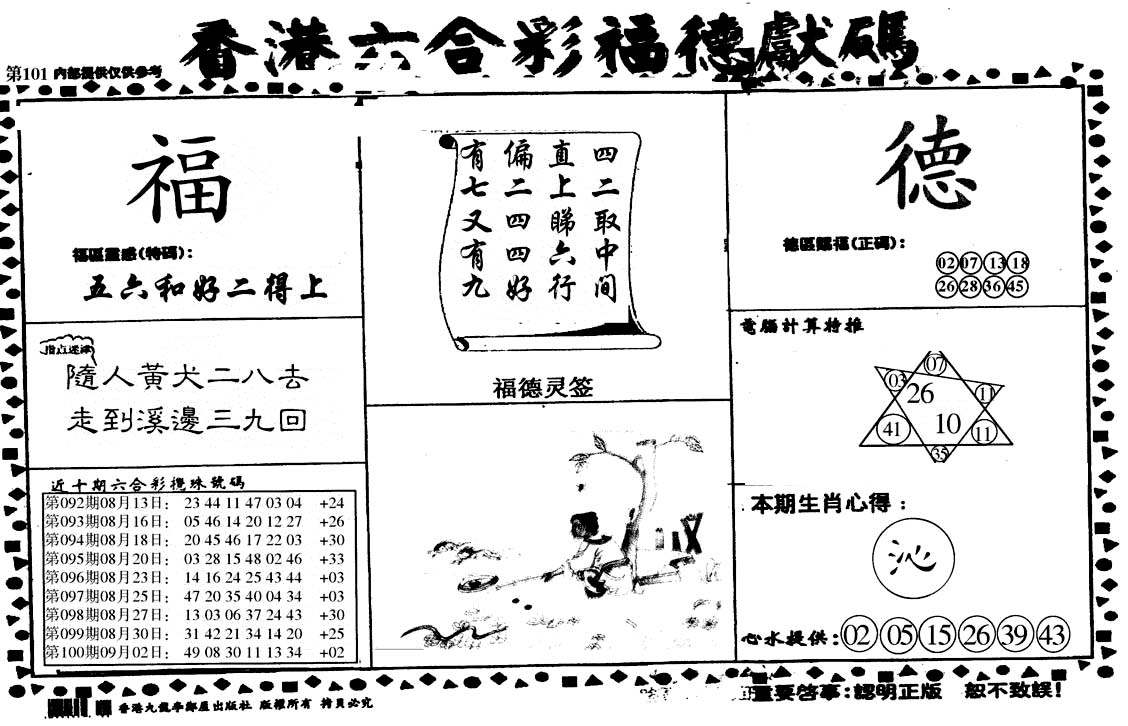 香港六合彩福德獻碼
第101 内部提供仅供参考
福
福區靈感(特碼):
五六和好二得上
指点迷津
隨人黃犬二八去
走到溪邊三九回
近十期六合彩攪珠號碼
第092期08月13日: 23 44 11 47 03 04 +24
第093期08月16日: 05 46 14 20 12 27 +26
第094期08月18日: 20 45 46 17 22 03 +30
第095期08月20日: 03 28 15 48 02 46 +33
第096期08月23日: 14 16 24 25 43 44 +03
第097期08月25日: 47 20 35 40 04 34 +03
第098期08月27日: 13 03 06 37 24 43 +30
第099期08月30日: 31 42 21 34 14 20 +25
第100期09月02日: 49 08 30 11 13 34 +02
四二取中间
直上睇六行
偏二四四好
有七又有九
福德灵签
德
德區賜福(正碼):
02 07 13 18
26 28 36 45
電腦計算特推
07
03 26 11
41 10 11
35
本期生肖心得:
沁
心水提供: 02 05 15 26 39 43
重要啓事:認明正版 恕不致誤!
版權所有 拷貝必究